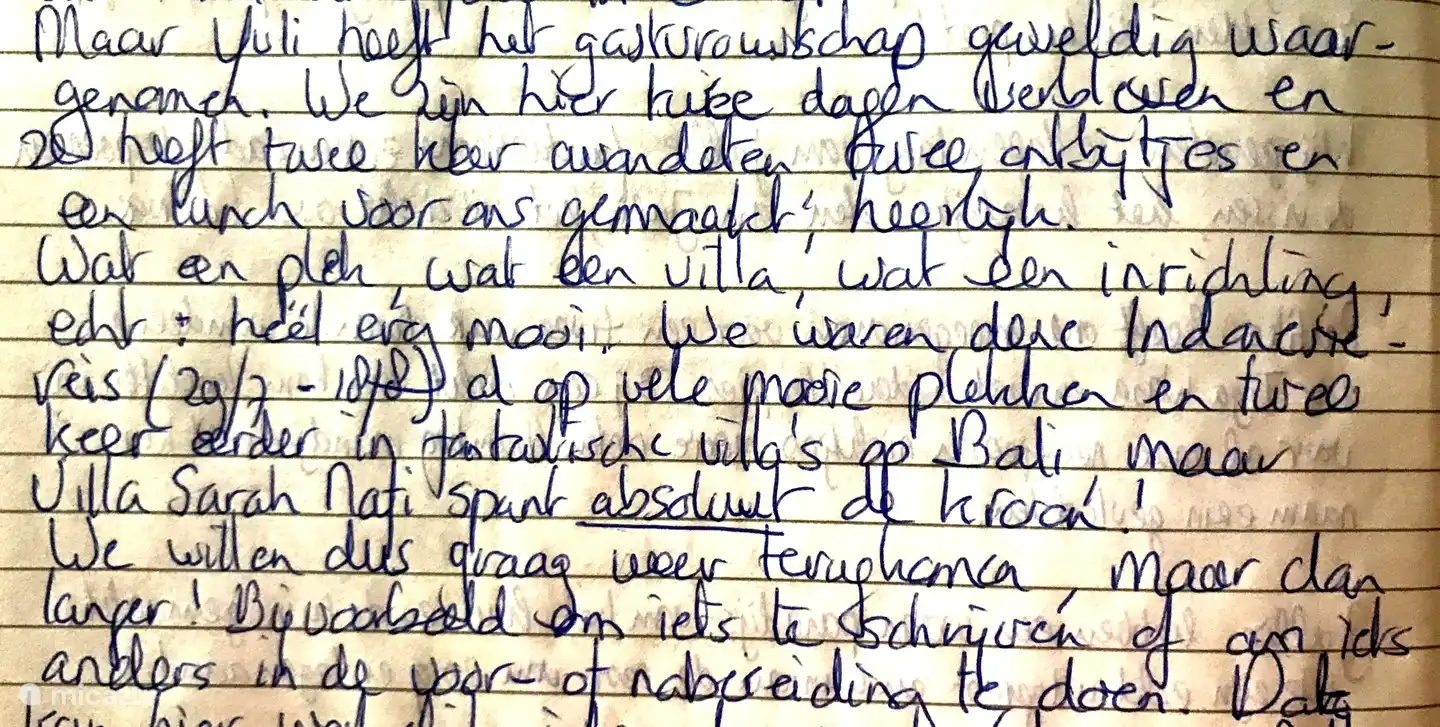 Maar Yuli heeft het gastvrouwschap geweldig waar-
genomen. We zijn hier twee dagen verbleven en
ze heeft twee keer avondeten, twee ontbijtjes en
een lunch voor ons gemaakt; heerlijk.
Wat een plek, wat een villa, wat een inrichting,
echt: héél erg mooi. We waren deze Indonesië-
reis (29/7 - 18/8) al op vele mooie plekken en twee
keer eerder in fantastische villa's op Bali, maar
Villa Sarah Nafi spant absoluut de kroon!
We willen dus graag weer terugkomen, maar dan
langer! Bijvoorbeeld om iets te schrijven of om iets
anders in de voor- of nabereiding te doen. Dat
kan hier
mica